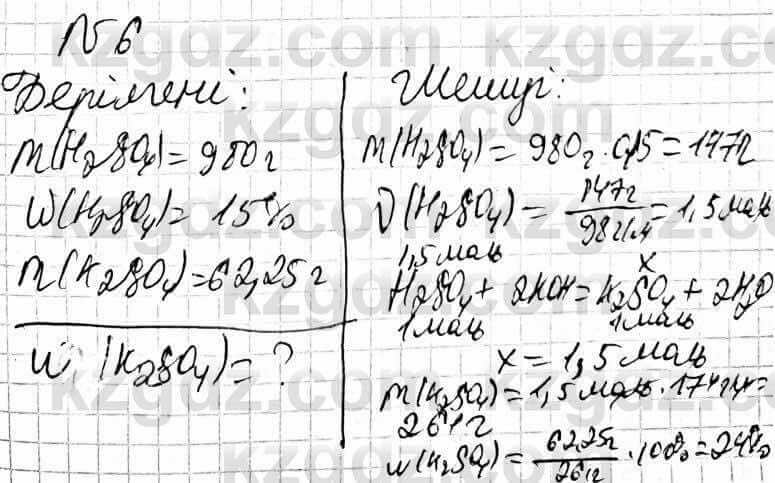 №6
Берілгені:
m(H₂SO₄)=980г
W(H₂SO₄)=15%
m(K₂SO₄)=62,25г
W (K₂SO₄)=?
Шешуі:
m(H₂SO₄)=980г·0,15=147г
ν(H₂SO₄)=147г/98г/м=1,5моль
1,5моль x
H₂SO₄+2KOH=K₂SO₄+2H₂O
1моль 1моль
x=1,5моль
m(K₂SO₄)=1,5моль·174г/м=
261г
w(K₂SO₄)=62,25г/261г·100%=24%
kzgdz.com